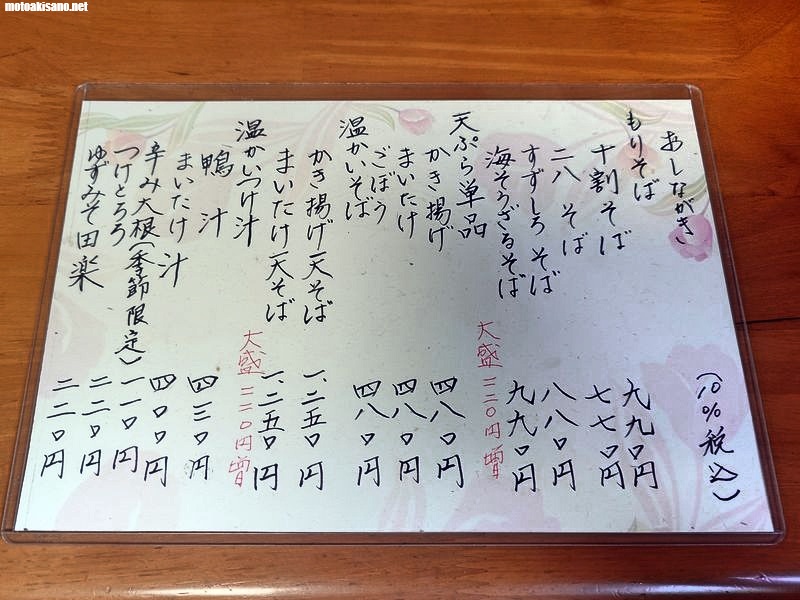 motoakisano.net
おしながき (10%税込)
もりそば
十割そば 九九〇円
二八そば 七七〇円
すずしろそば 八八〇円
海そうざるそば 九九〇円
大盛二二〇円増
天ぷら単品
かき揚げ 四八〇円
まいたけ 四八〇円
ごぼう 四八〇円
温かいそば
かき揚げ天そば 一、二五〇円
まいたけ天そば 一、二五〇円
大盛二二〇円増
温かいつけ汁
鴨汁 四三〇円
まいたけ汁 四〇〇円
辛み大根(季節限定) 一一〇円
つけとろろ 二二〇円
ゆずみそ田楽 二二〇円